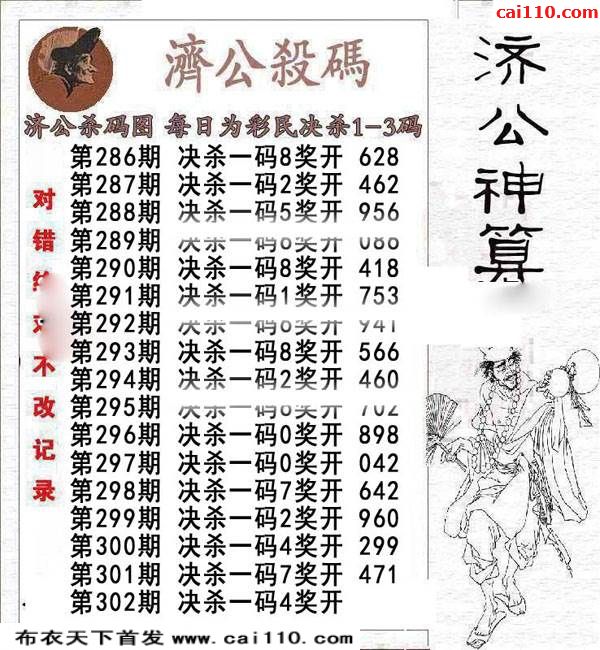 cai110.com
濟公殺碼
济公杀码图 每日为彩民决杀1-3码
第286期 决杀一码8奖开 628
第287期 决杀一码2奖开 462
第288期 决杀一码5奖开 956
第289期 决杀一码 奖开
第290期 决杀一码8奖开 418
第291期 决杀一码1奖开 753
第292期 决杀一码 奖开 941
第293期 决杀一码8奖开 566
第294期 决杀一码2奖开 460
第295期 决杀一码 奖开 702
第296期 决杀一码0奖开 898
第297期 决杀一码0奖开 042
第298期 决杀一码7奖开 642
第299期 决杀一码2奖开 960
第300期 决杀一码4奖开 299
第301期 决杀一码7奖开 471
第302期 决杀一码4奖开
对错 不改记录
济公神算
布衣天下首发 www.cai110.com